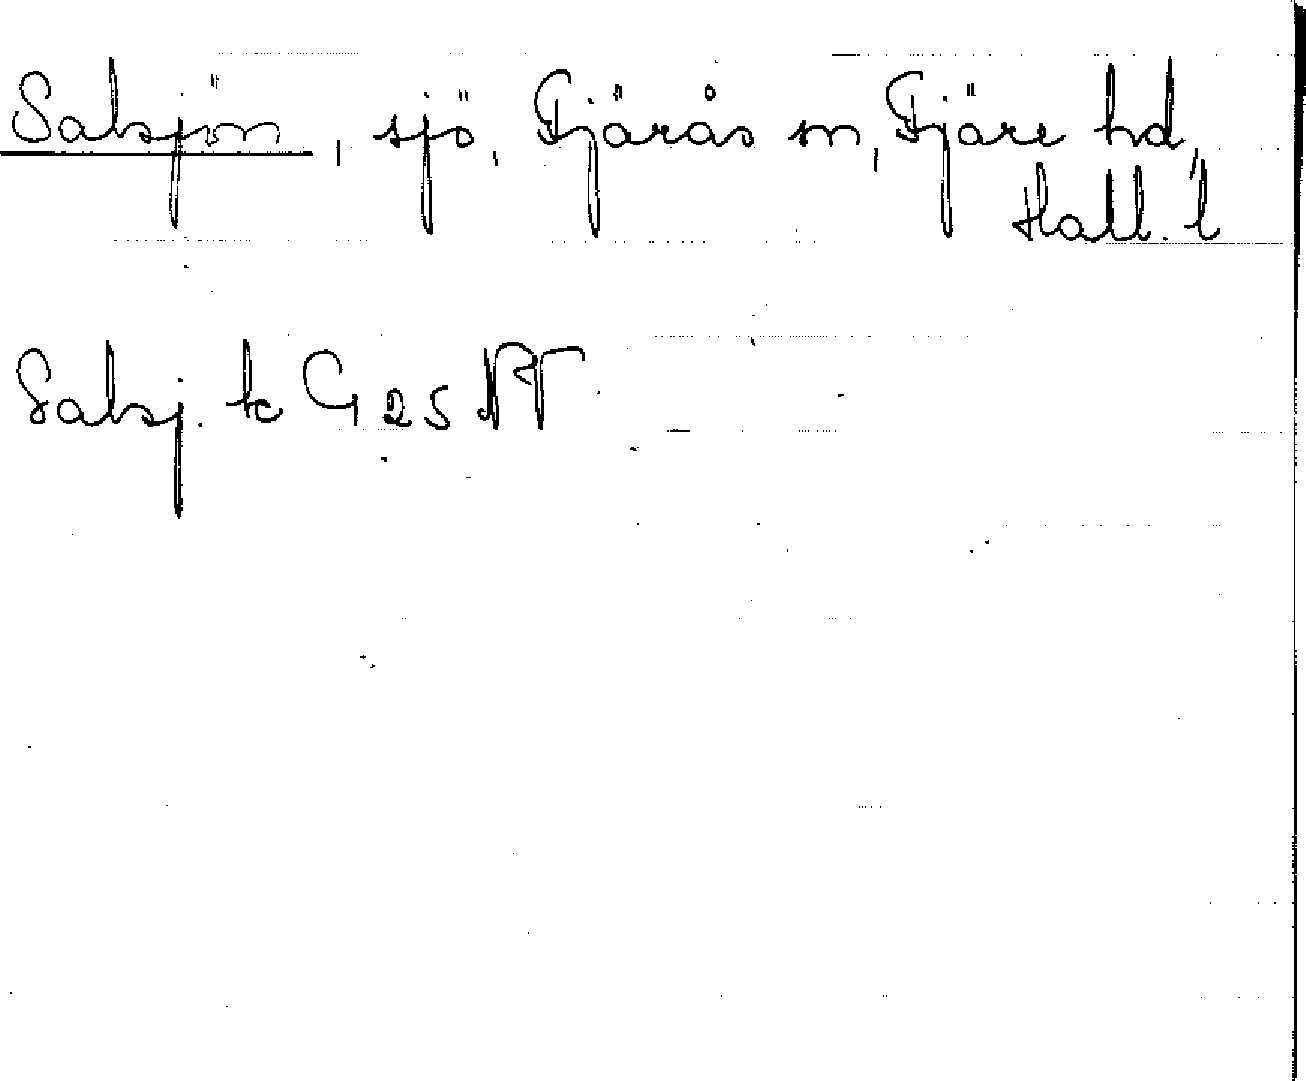 Salsjön, sjö, Fjärås sn, Fjäre hd,
Hall. l
Salsj. k G 25 RT